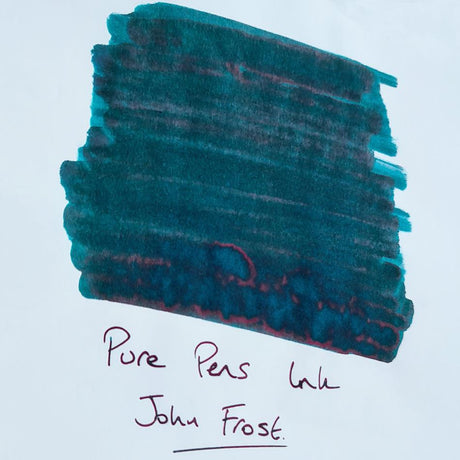 Pure Pens Ink
John Frost.